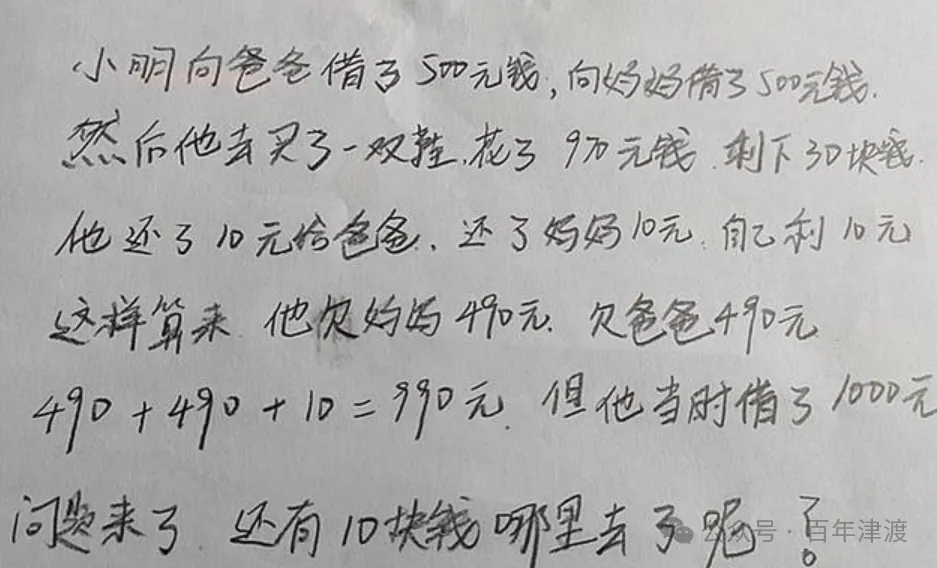 小明向爸爸借了500元钱,向妈妈借了500元钱.
然后他去买了一双鞋.花了970元钱.剩下30块钱.
他还了10元给爸爸.还了妈妈10元.自己利10元
这样算来 他欠妈妈490元.欠爸爸490元
490+490+10=990元.但他当时借了1000元
问题来了.还有10块钱哪里去了呢?
公众号·百年津渡